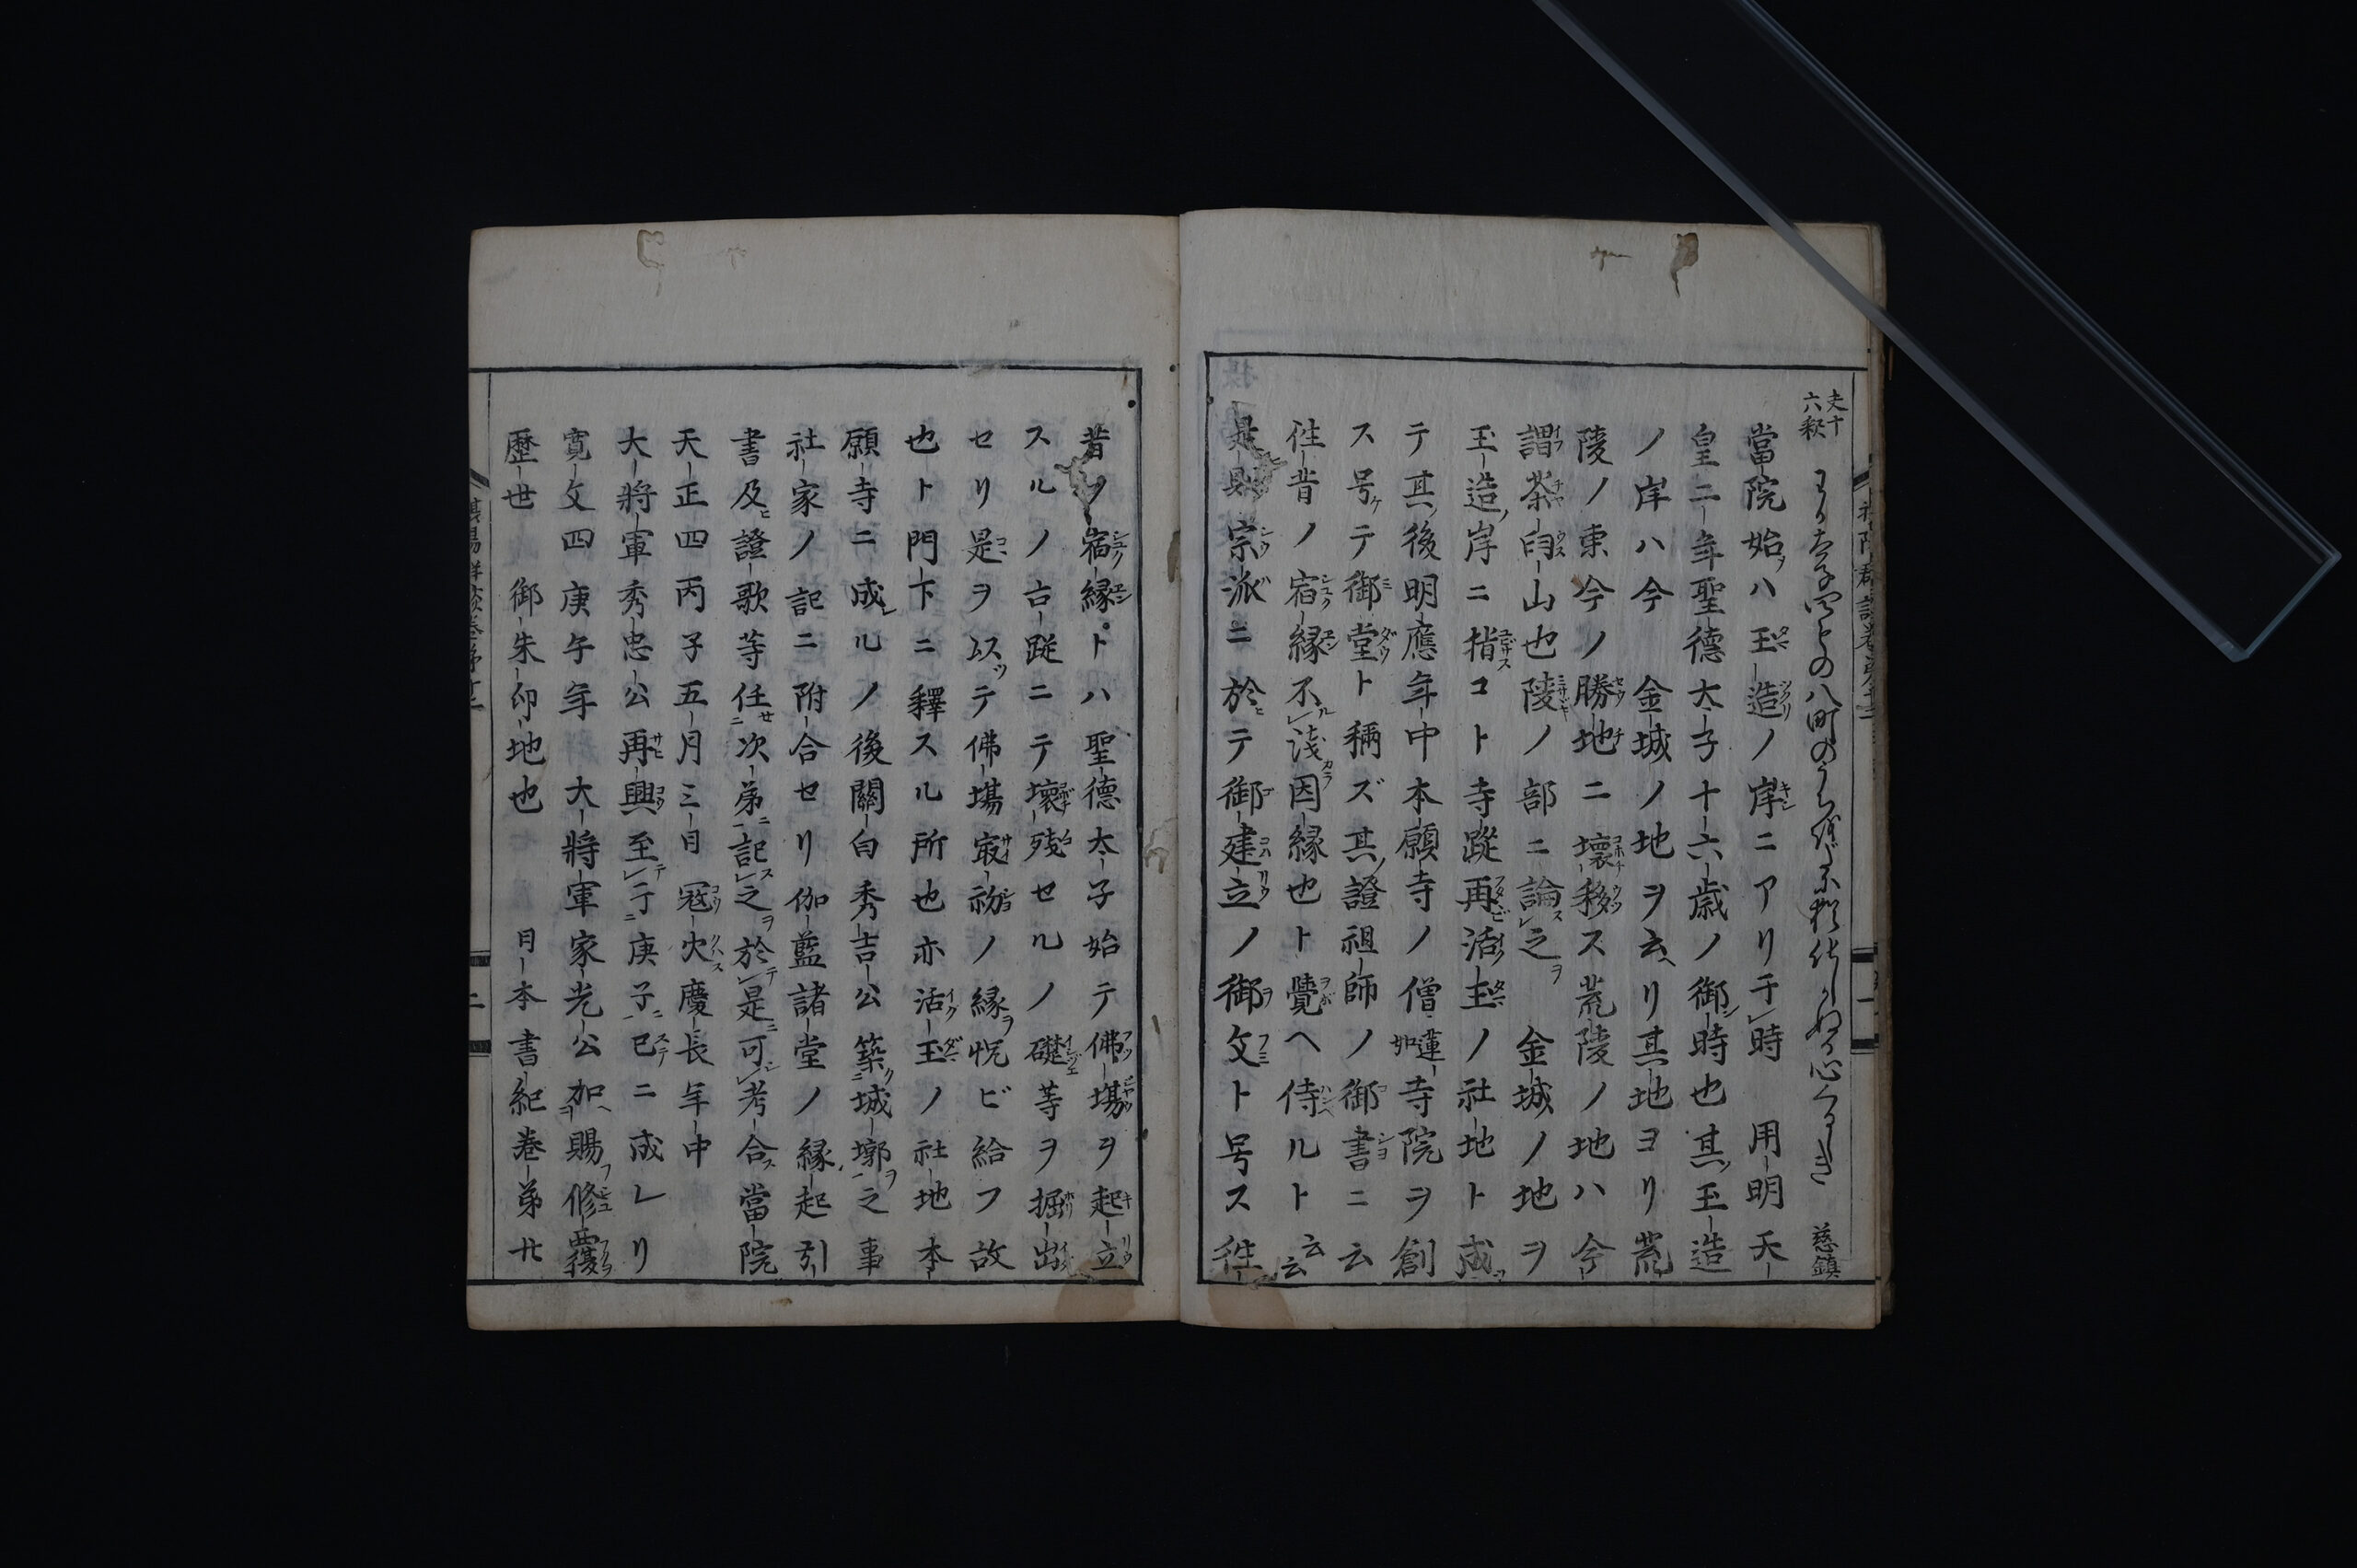 夫十
六釈
慈鎮
當院始ハ玉造ノ岸ニアリ于時 用明天
皇二年聖德太子十六歳ノ御時也其玉造
ノ岸ハ今 金城ノ地ヲ云ヘリ其地ヨリ荒
陵ノ東今ノ勝地ニ壞移ス荒陵ノ地ハ今
謂茶臼山也陵ノ部ニ論之 金城ノ地ヲ
玉造岸ニ指コト寺蹤再活玉ノ社地ト成
テ其後明應年中本願寺ノ僧蓮如寺院ヲ創
ス号ケテ御堂ト稱ズ其證祖師ノ御書ニ云
徃昔ノ宿縁不淺因縁也ト覺ヘ侍ルト云云
是則宗派ニ於テ御建立ノ御文ト号ス徃
昔ノ宿縁トハ聖德太子始テ佛場ヲ起立
スルノ古蹤ニテ壞殘セルノ礎等ヲ掘出
セリ是ヲ以テ佛場最初ノ縁ヲ悦ビ給フ故
也ト門下ニ釋スル所也亦活玉ノ社地本
願寺ニ成ルノ後關白秀吉公築城墎之事
社家ノ記ニ附合セリ伽藍諸堂ノ縁起引
書及證歌等任次第記之於是可考合當院
天正四丙子五月三日冦火慶長年中
大將軍秀忠公再興至于庚子已ニ成レリ
寛文四庚午年 大將軍家光公加賜修覆
歴世 御朱印地也 日本書紀巻第廿
二